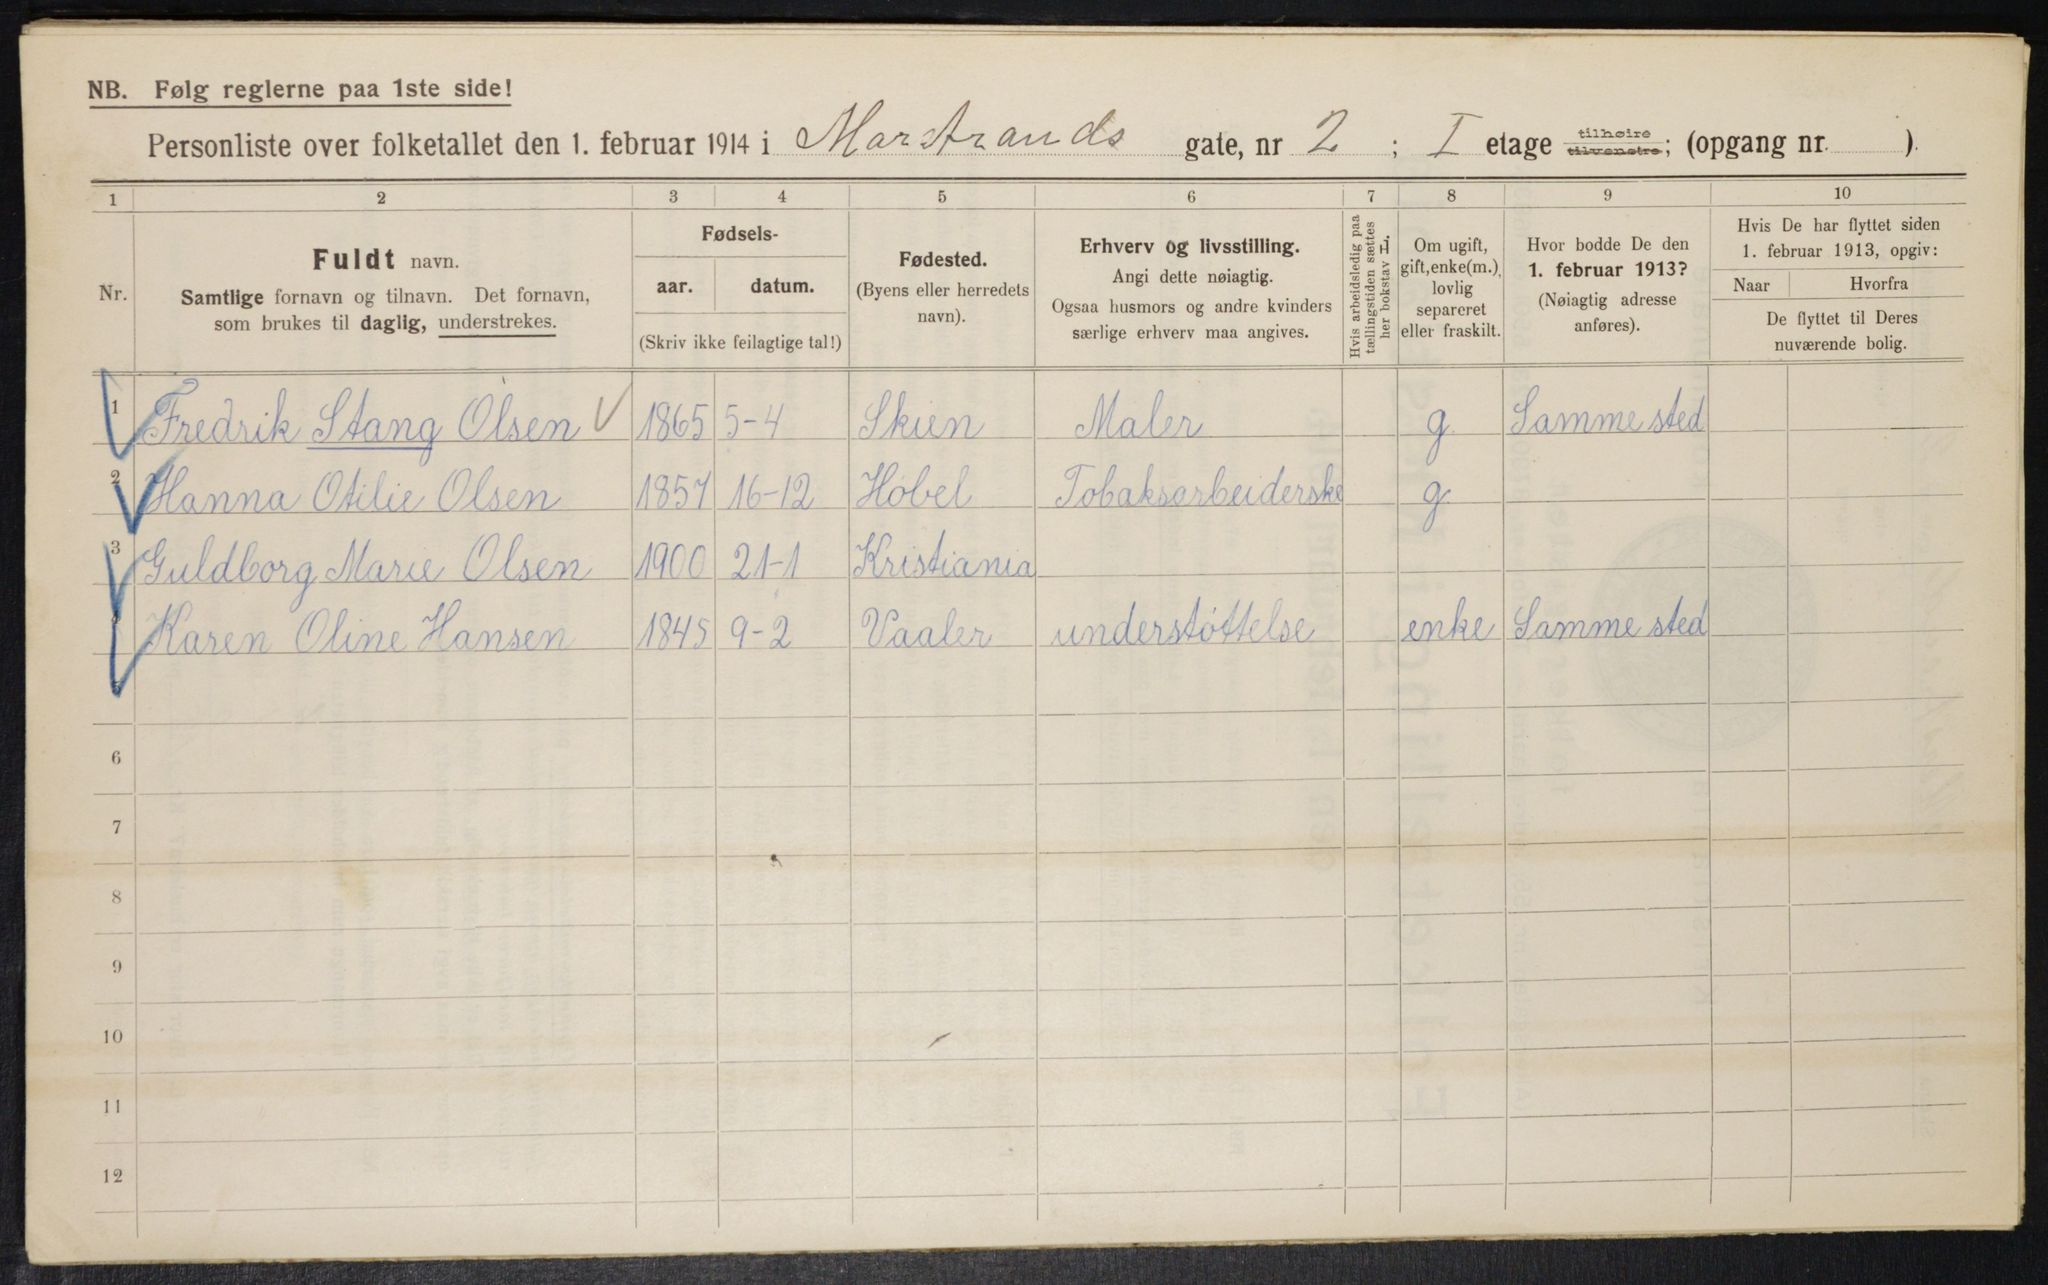 NB. Følg reglerne paa 1ste side!
Personliste over folketallet den 1. februar 1914 i Marstrands gate, nr 2 ; I etage tilhøire tilvenstre; (opgang nr. ).
1 2 3 4 5 6 7 8 9 10
Nr.
Fuldt navn.
Samtlige fornavn og tilnavn. Det fornavn,
som brukes til daglig, understrekes.
Fødsels-
aar. datum.
(Skriv ikke feilagtige tal!)
Fødested.
(Byens eller herredets
navn).
Erhverv og livsstilling.
Angi dette nøiagtig.
Ogsaa husmors og andre kvinders
særlige erhverv maa angives.
Hvis arbeidsledig paa
tællingstiden sættes
her bokstav L.
Om ugift,
gift, enke(m.),
lovlig
separeret
eller fraskilt.
Hvor bodde De den
1. februar 1913?
(Nøiagtig adresse
anføres).
Hvis De har flyttet siden
1. februar 1913, opgiv:
Naar Hvorfra
De flyttet til Deres
nuværende bolig.
1 Fredrik Stang Olsen 1865 5-4 Skien Maler g. Samme sted
2 Hanna Otilie Olsen 1857 16-12 Høbel Tobaksarbeiderske g.
3 Guldborg Marie Olsen 1900 21-1 Kristiania
Karen Oline Hansen 1845 9-2 Vaaler understøttelse enke Samme sted
5
6
7
8
9
10
11
12